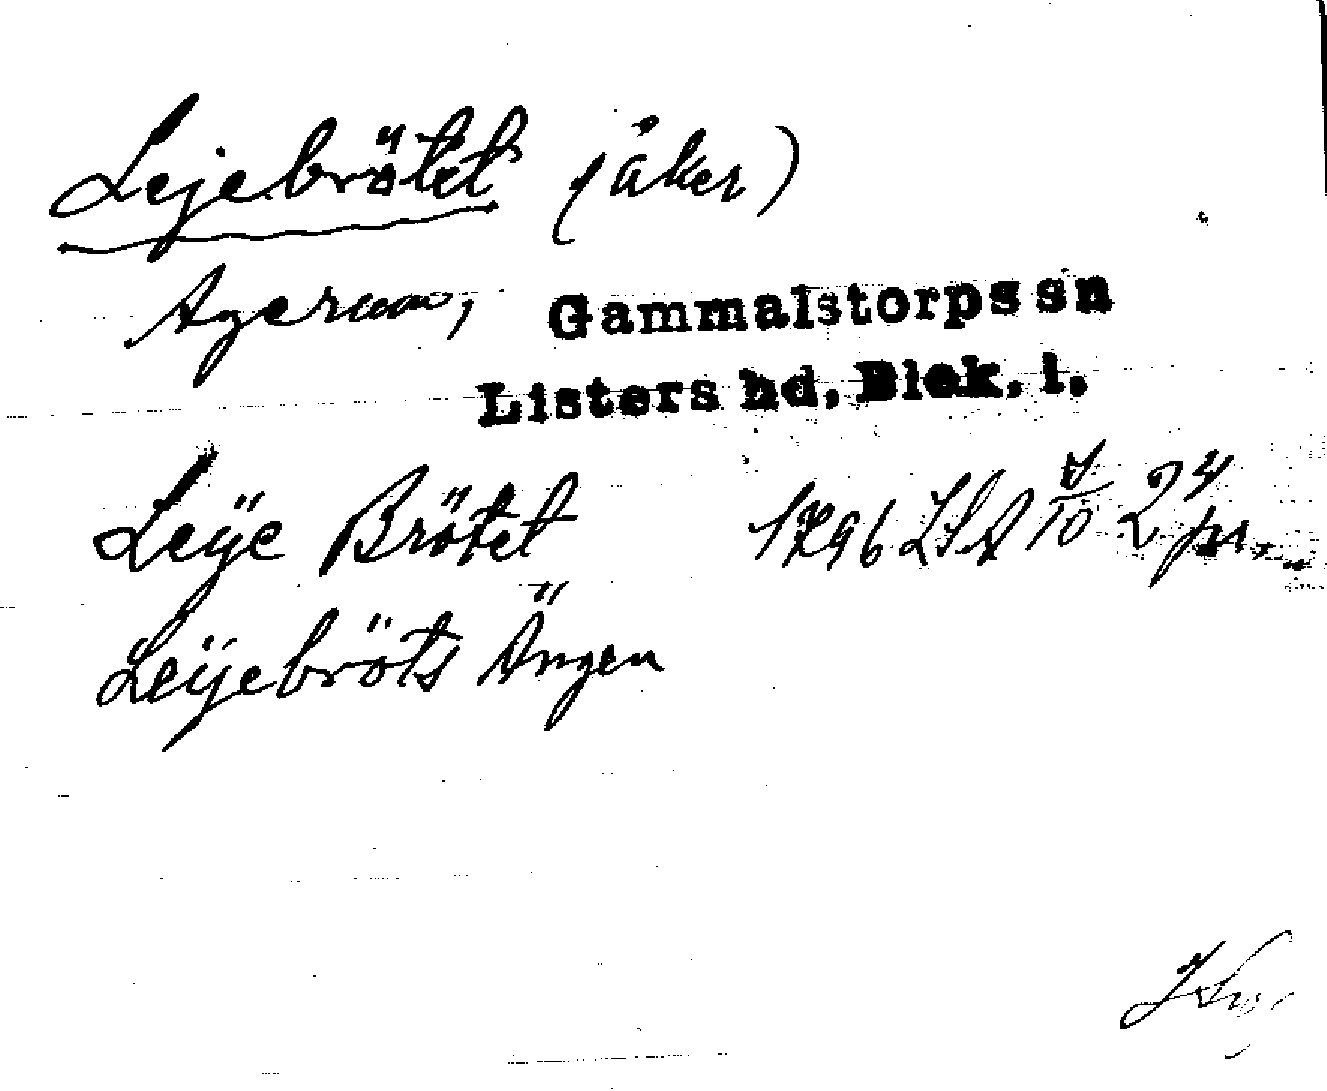 Lejebrötet (åker)
Agerum, Gammalstorps sn
Listers hd, Blek. l.
Leÿe Brötet 1796 LSA 24
Leÿebröts Ängen